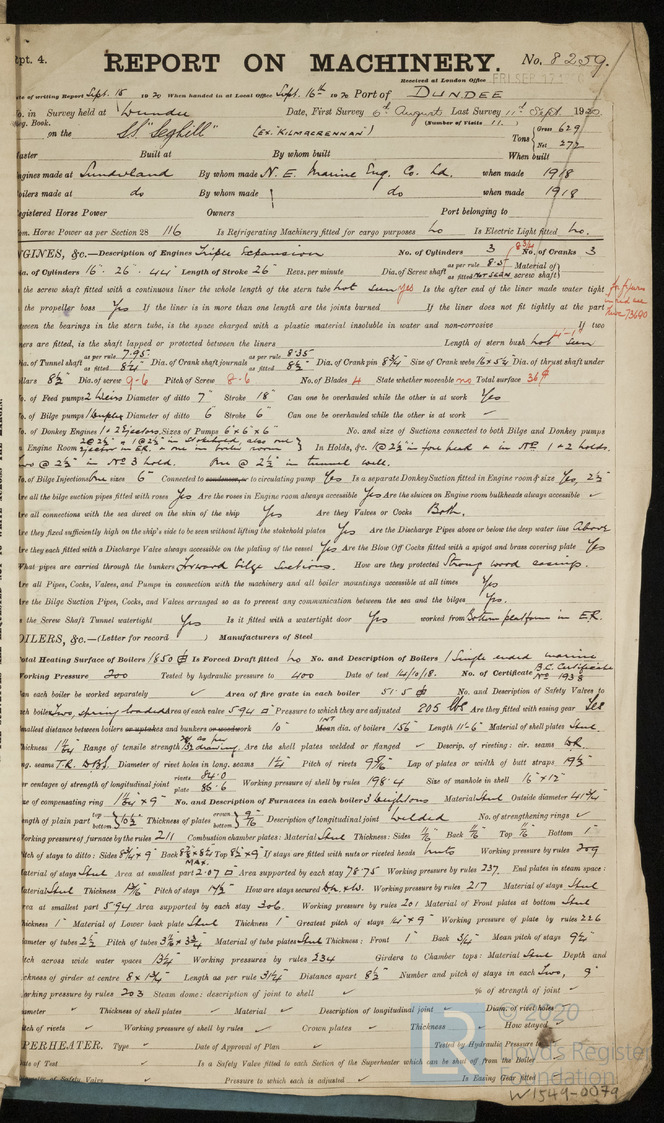 pt. 4.
REPORT ON MACHINERY.
No. 8259.
Received at London Office FRI. SEP. 17
te of writing Report Sept. 15 1920 When handed in at Local Office Sept. 16th 1920 Port of DUNDEE
o. in Survey held at Dundee Date, First Survey 6th August Last Survey 11th Sept 1920
g. Book. (Number of Visits 11.)
on the SS "Seghill" (EX. "KILMACRENNAN") Tons { Gross 629 Net 277
aster Built at By whom built When built
ngines made at Sunderland By whom made N.E. Marine Eng. Co. Ld. when made 1918
oilers made at do By whom made do when made 1918
egistered Horse Power Owners Port belonging to
om. Horse Power as per Section 28 116 Is Refrigerating Machinery fitted for cargo purposes No Is Electric Light fitted No.
NGINES, &c.—Description of Engines Triple Expansion No. of Cylinders 3 No. of Cranks 3
ia. of Cylinders 16" 26" 44" Length of Stroke 26" Revs. per minute Dia. of Screw shaft as per rule 8.5" as fitted NOT SEEN 8 3/4 Material of screw shaft
the screw shaft fitted with a continuous liner the whole length of the stern tube Not seen yes Is the after end of the liner made water tight
the propeller boss Yes If the liner is in more than one length are the joints burned If the liner does not fit tightly at the part
ween the bearings in the stern tube, is the space charged with a plastic material insoluble in water and non-corrosive If two
ners are fitted, is the shaft lapped or protected between the liners Length of stern bush Not seen 4'-1"
for figures in red see
ia. of Tunnel shaft as per rule 7.95" as fitted 8 1/4" Dia. of Crank shaft journals as per rule 8.35" as fitted 8 1/2" Dia. of Crank pin 8 3/4" Size of Crank webs 16 x 5 1/4 Dia. of thrust shaft under
llars 8 1/2" Dia. of screw 9-6 Pitch of Screw 8-6 No. of Blades 4 State whether moveable no Total surface 36
o. of Feed pumps 2 Weirs Diameter of ditto 7" Stroke 18" Can one be overhauled while the other is at work Yes
o. of Bilge pumps 1 Duplex Diameter of ditto 6 Stroke 6" Can one be overhauled while the other is at work ✓
o. of Donkey Engines 1 + 2 Ejectors. Sizes of Pumps 6" x 6" x 6" No. and size of Suctions connected to both Bilge and Donkey pumps
Engine Room 2 @ 2 1/2" + 1 @ 2 1/2" in Stokehold, also one ejector in E.R. + one in boiler room In Holds, &c. 1 @ 2 1/2" in fore peak + in No. 1 + 2 holds.
two @ 2 1/2" in No 3 hold. One @ 2 1/2" in tunnel well.
o. of Bilge Injections One sizes 6" Connected to condenser, or to circulating pump Yes Is a separate Donkey Suction fitted in Engine room & size Yes, 2 1/2
re all the bilge suction pipes fitted with roses Yes Are the roses in Engine room always accessible Yes Are the sluices on Engine room bulkheads always accessible ✓
re all connections with the sea direct on the skin of the ship Yes Are they Valves or Cocks Both.
re they fixed sufficiently high on the ship's side to be seen without lifting the stokehold plates Yes Are the Discharge Pipes above or below the deep water line Above
re they each fitted with a Discharge Valve always accessible on the plating of the vessel Yes Are the Blow Off Cocks fitted with a spigot and brass covering plate Yes
What pipes are carried through the bunkers Forward bilge suctions. How are they protected Strong wood casings.
re all Pipes, Cocks, Valves, and Pumps in connection with the machinery and all boiler mountings accessible at all times Yes
re the Bilge Suction Pipes, Cocks, and Valves arranged so as to prevent any communication between the sea and the bilges Yes.
s the Screw Shaft Tunnel watertight Yes Is it fitted with a watertight door Yes worked from Bottom platform in E.R.
OILERS, &c.—(Letter for record ) Manufacturers of Steel
otal Heating Surface of Boilers 1850 Is Forced Draft fitted No No. and Description of Boilers 1 Single ended marine
orking Pressure 200 Tested by hydraulic pressure to 400 Date of test 14/10/18. No. of Certificate B.C. Certificate No 1938
an each boiler be worked separately ✓ Area of fire grate in each boiler 51.5 No. and Description of Safety Valves to
ch boiler Two, spring loaded Area of each valve 5.94 Pressure to which they are adjusted 205 lbs Are they fitted with easing gear Yes
mallest distance between boilers or uptakes and bunkers or woodwork 10" INT Mean dia. of boilers 156" Length 11'-6" Material of shell plates Steel
hickness 1 1/4 Range of tensile strength as per drawing Are the shell plates welded or flanged ✓ Descrip. of riveting: cir. seams DR
ng. seams T.R. D.B.S. Diameter of rivet holes in long. seams 1 1/4 Pitch of rivets Lap of plates or width of butt straps 19 1/2
er centages of strength of longitudinal joint rivets 84.0 plate 86.6 Working pressure of shell by rules 198.4 Size of manhole in shell 16" x 12"
ze of compensating ring No. and Description of Furnaces in each boiler 3 Deightons Material Steel Outside diameter
ength of plain part top bottom Thickness of plates crown bottom Description of longitudinal joint welded No. of strengthening rings ✓
orking pressure of furnace by the rules 211 Combustion chamber plates: Material Steel Thickness: Sides 11/16 Back 11/16 Top 11/16 Bottom 1"
tch of stays to ditto: Sides 8 3/4 x 9" Back MAX. Top 8 1/2 x 9" If stays are fitted with nuts or riveted heads nuts Working pressure by rules 209
aterial of stays Steel Area at smallest part 2.07 Area supported by each stay 78.75 Working pressure by rules 237. End plates in steam space:
aterial Steel Thickness Pitch of stays How are stays secured Working pressure by rules 217 Material of stays Steel
rea at smallest part 5.94 Area supported by each stay 306. Working pressure by rules 201 Material of Front plates at bottom Steel
hickness 1" Material of Lower back plate Steel Thickness 1" Greatest pitch of stays 14" x 9" Working pressure of plate by rules 226
iameter of tubes 2 1/2 Pitch of tubes Material of tube plates Steel Thickness: Front 1" Back 3/4" Mean pitch of stays 9 1/2
tch across wide water spaces Working pressures by rules 234 Girders to Chamber tops: Material Steel Depth and
ckness of girder at centre 8 x 1 3/4" Length as per rule 31 1/2" Distance apart 8 1/2" Number and pitch of stays in each Two, 9"
orking pressure by rules 203 Steam dome: description of joint to shell ✓ % of strength of joint ✓
ameter ✓ Thickness of shell plates ✓ Material ✓ Description of longitudinal joint ✓ Diam. of rivet holes
tch of rivets ✓ Working pressure of shell by rules ✓ Crown plates ✓ Thickness ✓ How stayed
PERHEATER. Type ✓ Date of Approval of Plan ✓ Tested by Hydraulic Pressure to
te of Test ✓ Is a Safety Valve fitted to each Section of the Superheater which can be shut off from the Boiler
meter of Safety Valve ✓ Pressure to which each is adjusted ✓ Is Easing Gear fitted
© 2020
Lloyd's Register
Foundation
W1549-0079